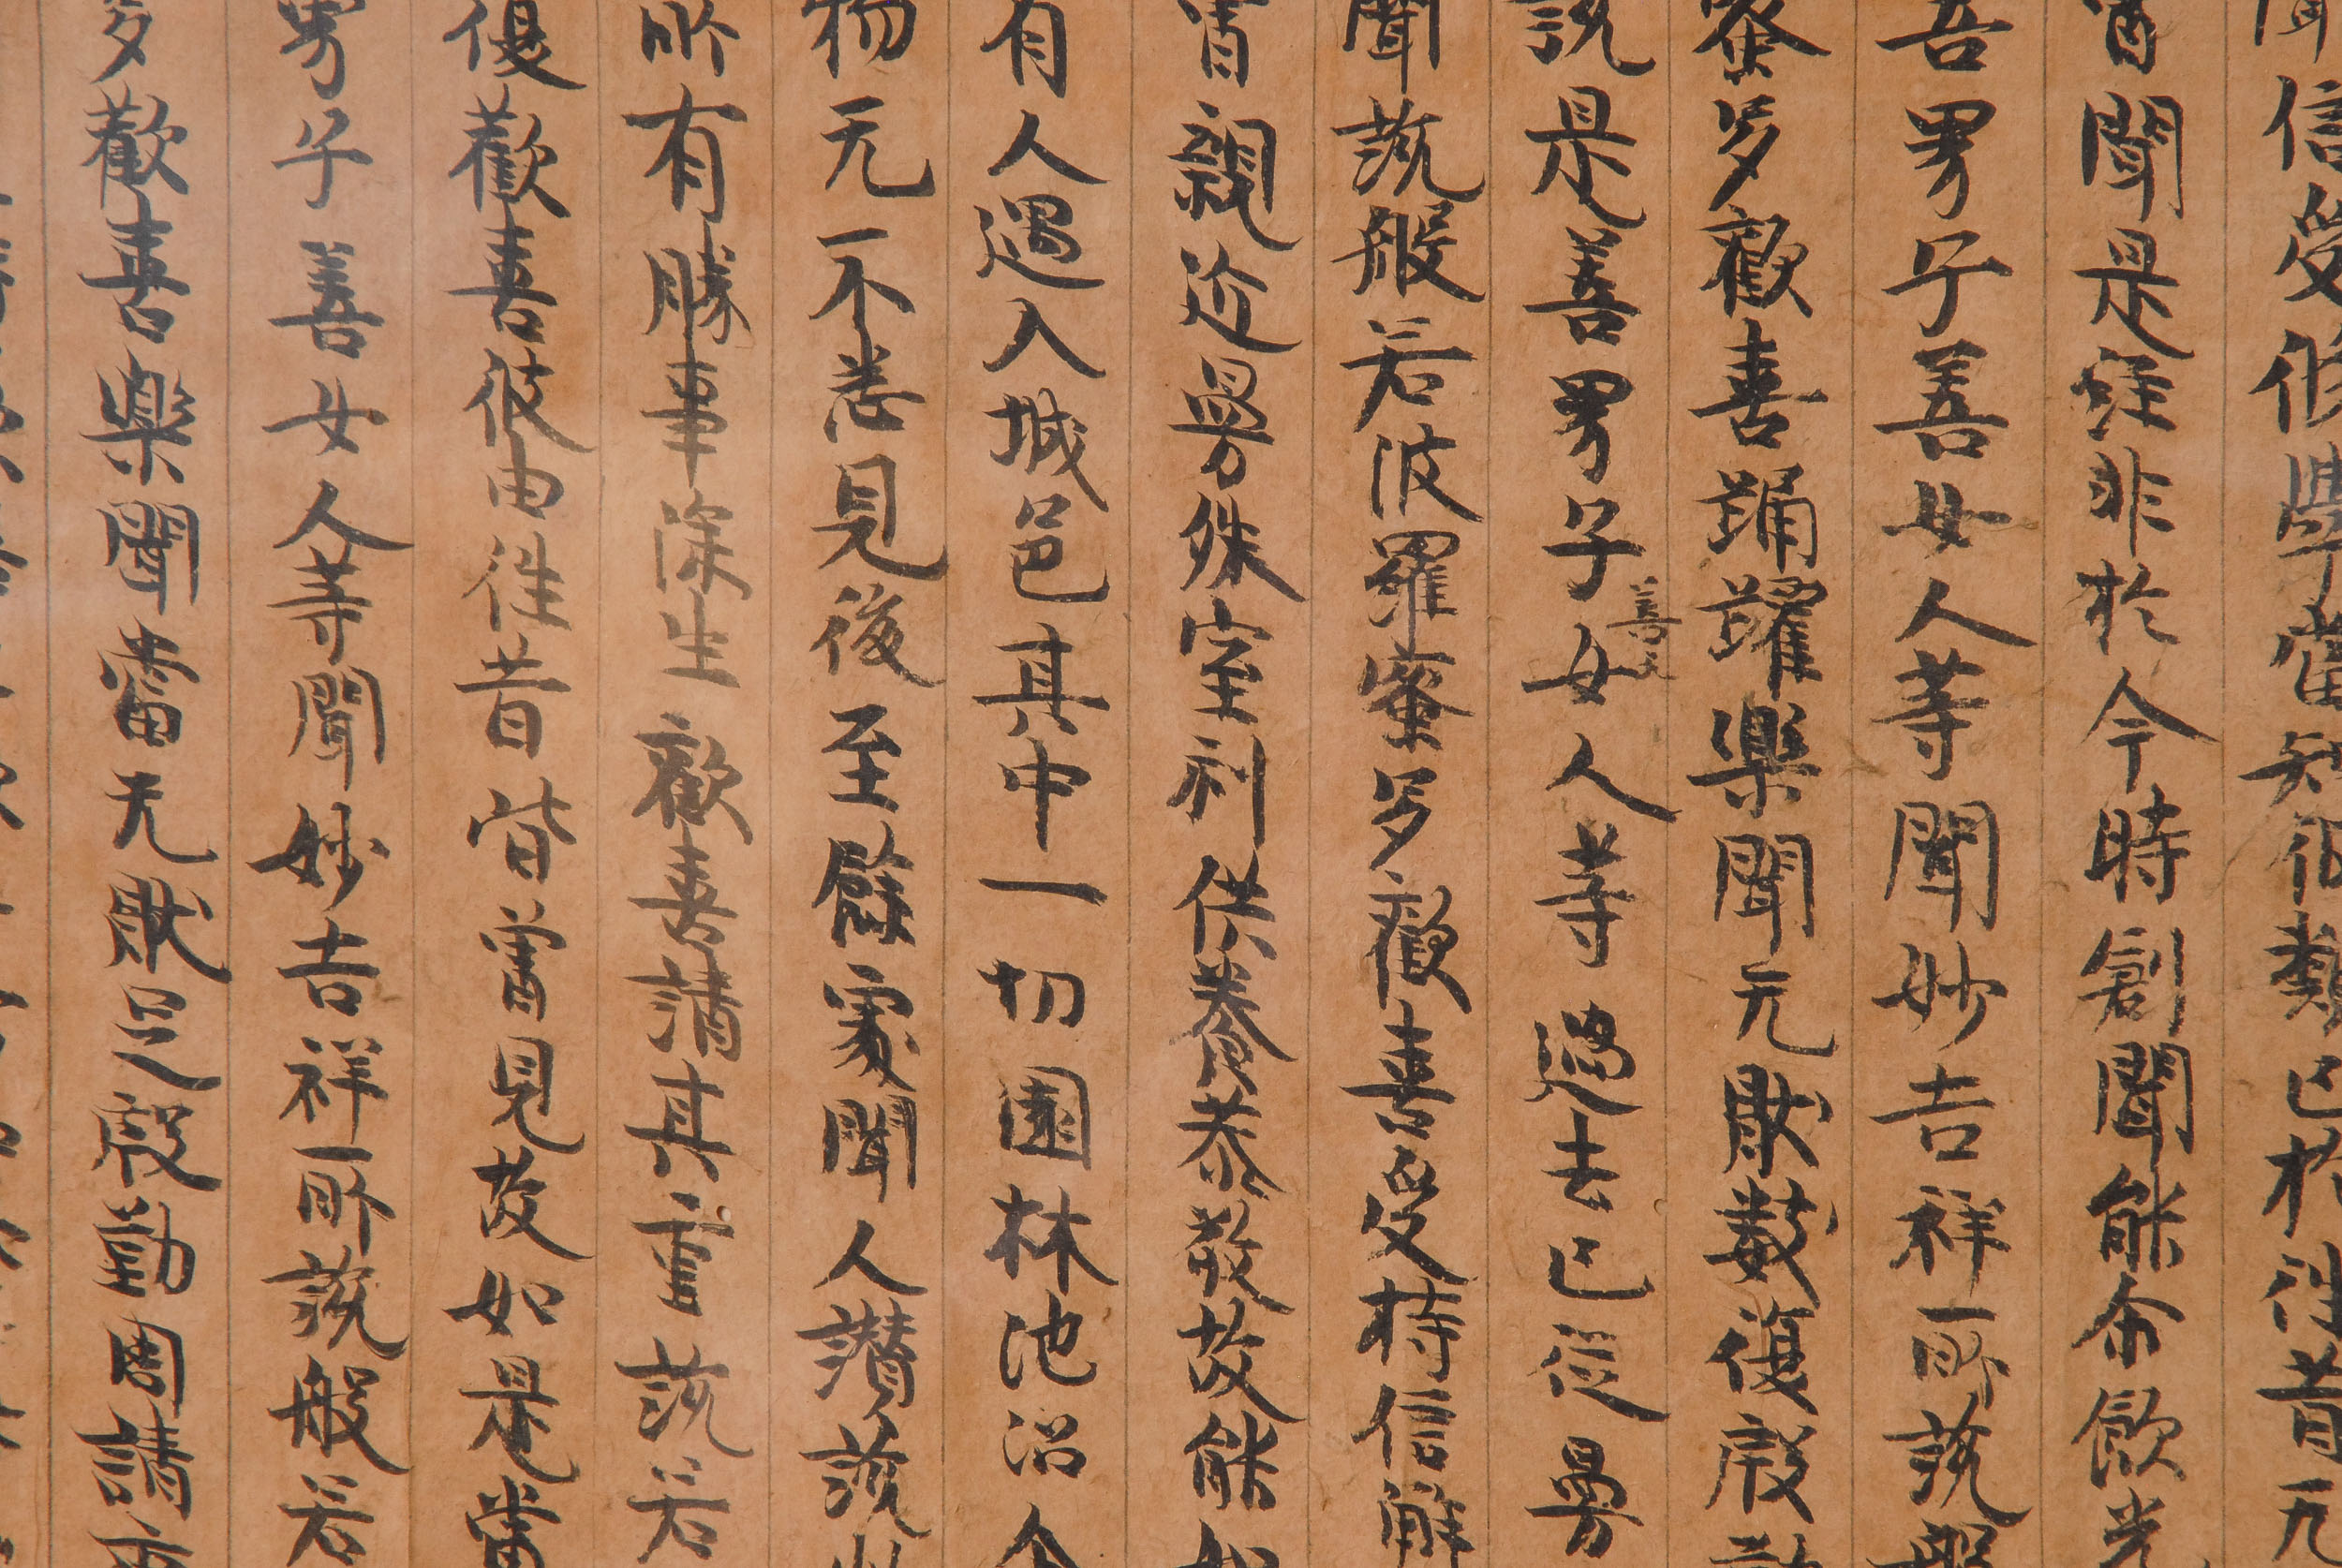 信受修學當知彼類已於往昔无
曾聞是經非於今時創聞能尒歡
吾男子善女人等聞妙吉祥所說般
蜜多歡喜踊躍樂聞无猒數復殷
說是善男子善女女人等過去已從曼
聞說般若波羅蜜多歡喜受持信解
曾親近曼殊室利供養恭敬故能
有人遇入城邑其中一切園林池沼
物无一不悉見後至餘處聞人讚說
所有勝事深生歡喜請其重說若
復歡喜彼由往昔皆曾見故如是當
男子善女人等聞妙吉祥所說般若
多歡喜樂聞嘗无猒足殷勤固請重